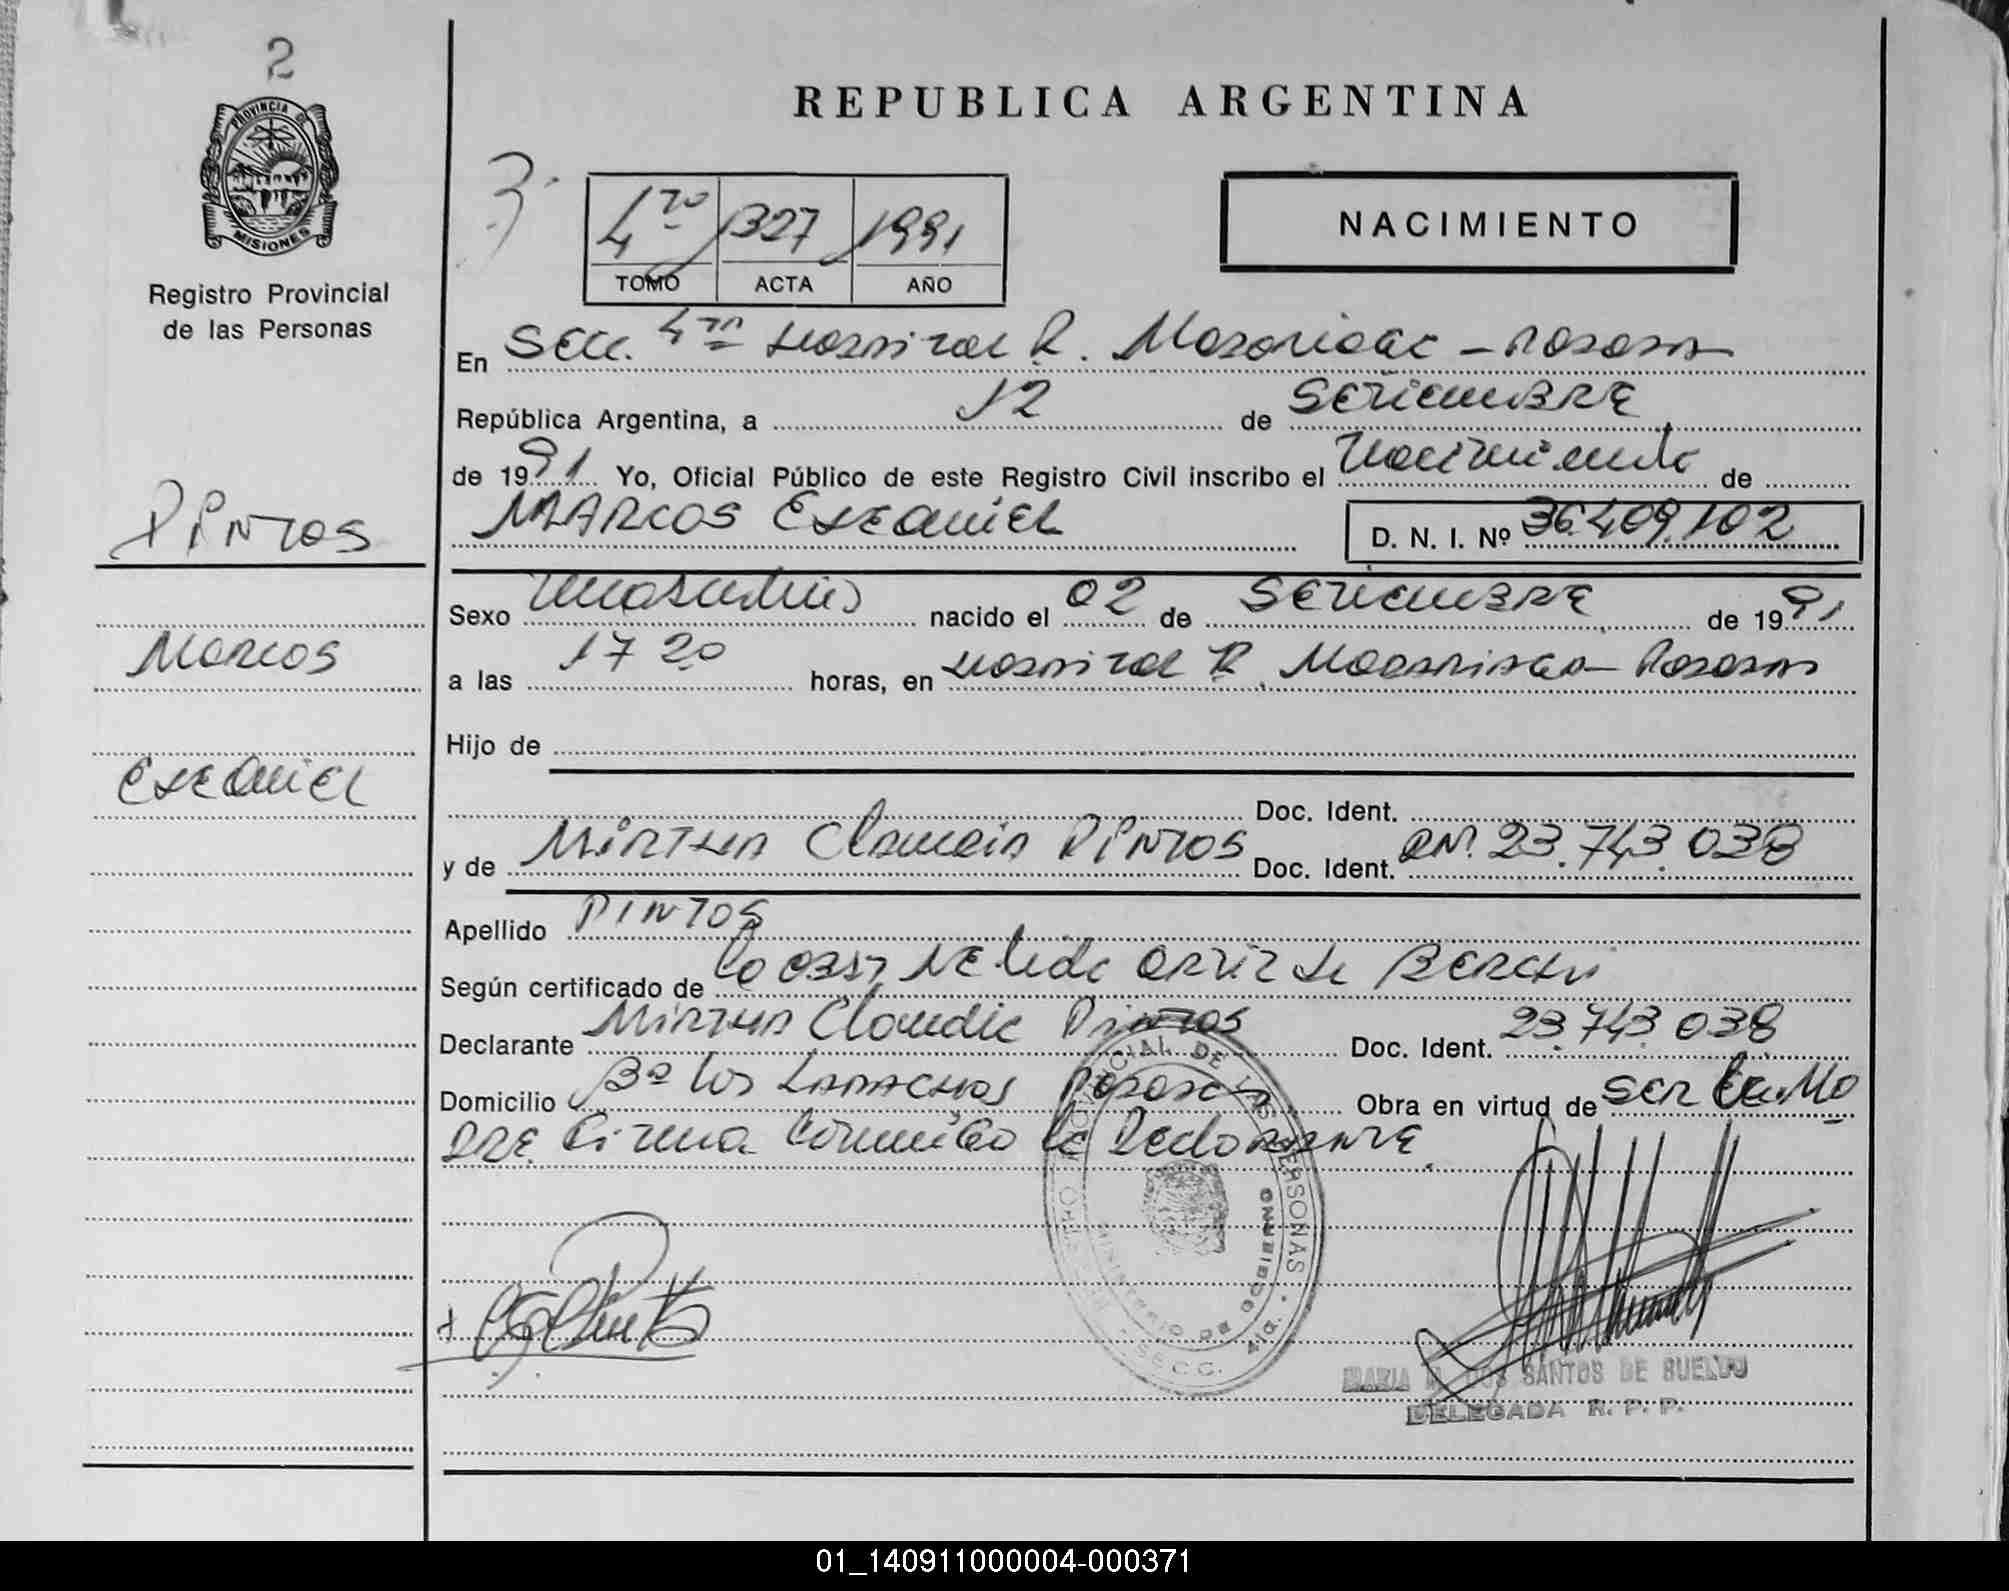 2
PROVINCIA DE
MISIONES
Registro Provincial
de las Personas
PINTOS
Marcos
EXEQUIEL
REPUBLICA ARGENTINA
3
4to 1327 1991
TOMO ACTA AÑO
NACIMIENTO
En Secc. 4ta Hospital R. Madariaga - Posadas
República Argentina, a 12 de SETIEMBRE
de 1991 Yo, Oficial Público de este Registro Civil inscribo el Nacimiento de
MARCOS EXEQUIEL D. N. I. Nº 36.409.102
Sexo Masculino nacido el 02 de SETIEMBRE de 1991
a las 17 20 horas, en Hospital R. Madariaga - Posadas
Hijo de
Doc. Ident.
y de MIRTHA Claudia PINTOS Doc. Ident. DNI. 23.743.038
Apellido PINTOS
Según certificado de la OBST, NElida ORTIZ de
Declarante MIRTHA Claudia PINTOS Doc. Ident. 23.743.038
Domicilio Bº los LAPACHOS Posadas Obra en virtud de SER la MA
DRE. Firma conmigo la DeclaRANTE.
REGISTRO PROVINCIAL DE LAS PERSONAS
MINISTERIO DE GOBIERNO
SECC. 4ta
MARIA DOS SANTOS DE
DELEGADA R. P. P.
01_140911000004-000371